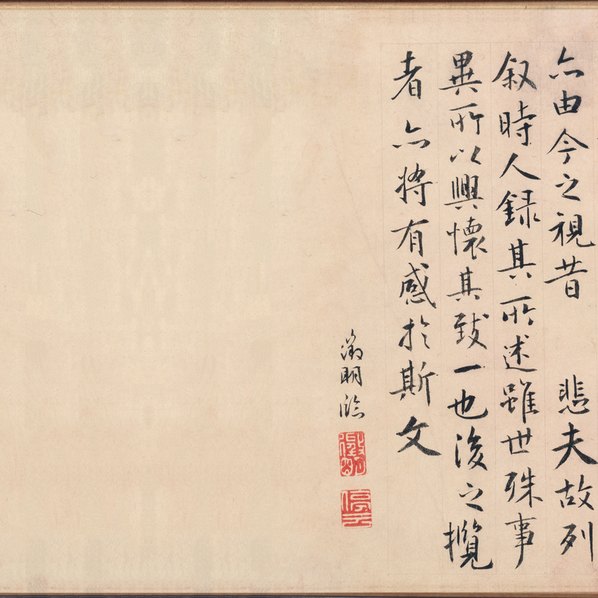 亦由今之視昔 悲夫故列
叙時人錄其所述雖世殊事
異所以興懷其致一也後之攬
者亦將有感於斯文
徵明臨
徵明
停雲